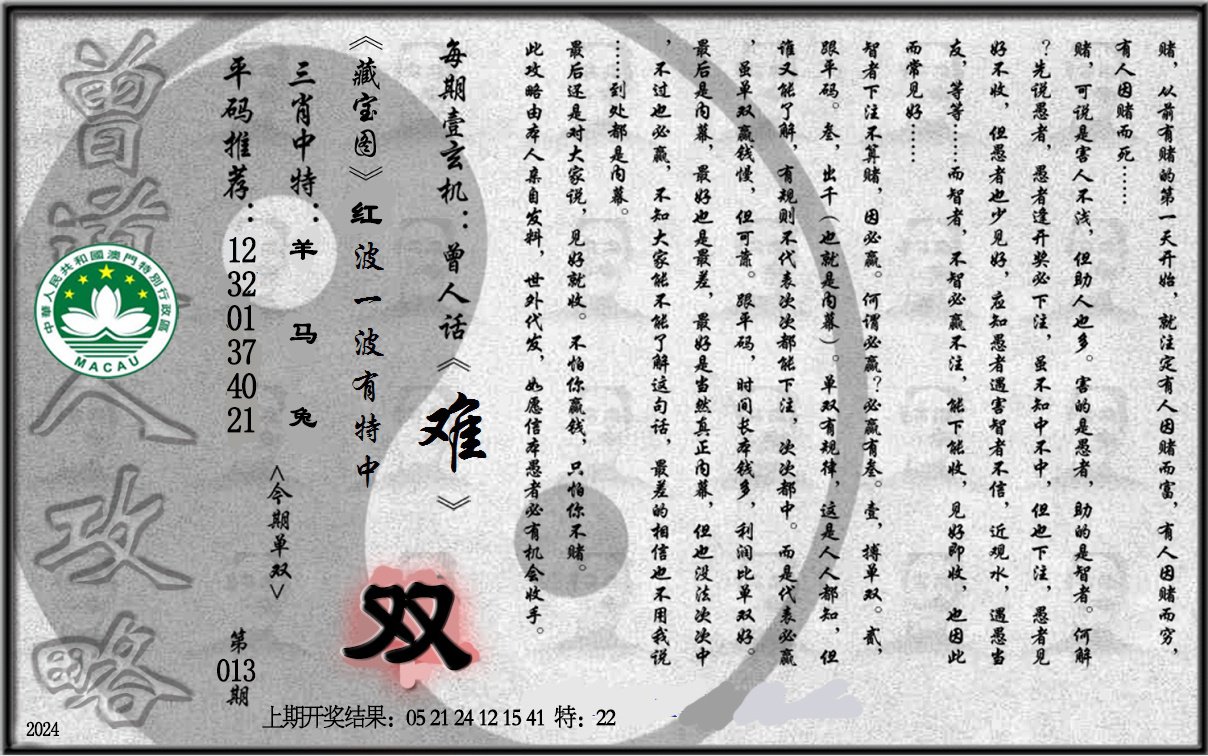 赌，从前有赌的第一天开始，就注定有人因赌而富，有人因赌而穷，
有人因赌而死……
赌，可说是害人不浅，但助人也多。害的是愚者，助的是智者。何解
？先说愚者，愚者逢开奖必下注，虽不知中不中，但也下注，愚者见
好不收，但愚者也少见好，应知愚者遇害智者不信，近观水，遇愚当
友，等等……而智者，不智必赢不注，能下能收，见好即收，也因此
而常见好……
智者下注不算赌，因必赢。何谓必赢？必赢有叁。壹，搏单双。贰，
跟平码。叁，出千（也就是内幕）。单双有规律，这是人人都知，但
谁又能了解，有规则不代表次次都能下注，次次都中。而是代表必赢
，虽单双赢钱慢，但可靠。跟平码，时间长本钱多，利润比单双好。
最后是内幕，最好也是最差，最好是当然真正内幕，但也没法次次中
，不过也必赢，不知大家能不能了解这句话，最差的相信也不用我说
……到处都是内幕。
最后还是对大家说，见好就收。不怕你赢钱，只怕你不赌。
此攻略由本人亲自发料，世外代发，如愿信本愚者必有机会收手。
每期壹玄机：曾人话《难》
《藏宝图》红波一波有特中
三肖中特：羊 马 兔
<今期单双>
双
平码推荐：12 32 01 37 40 21
第013期
曾道人攻略
中華人民共和國澳門特別行政區
MACAU
上期开奖结果：05 21 24 12 15 41 特：22
2024